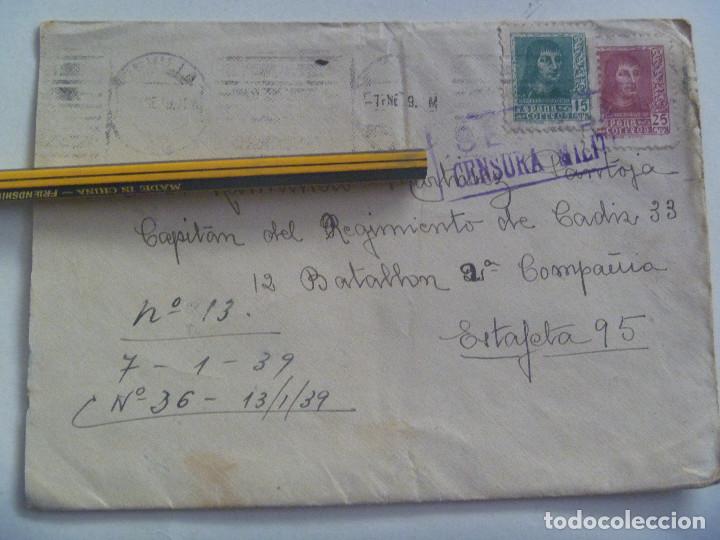 SEVILLA
7 ENE 9. M
ESPAÑA 15
CORREOS
ESPAÑA 25
CORREOS
CENSURA MILIT
MADE IN CHINA — FRIENDSHI
Martinez Pantoja
Capitán del Regimiento de Cadiz 33
12 Batallon 2ª Compañia
Estafeta 95
nº 13.
7 - 1 - 39
Nº 36 - 13/1/39
todocoleccion